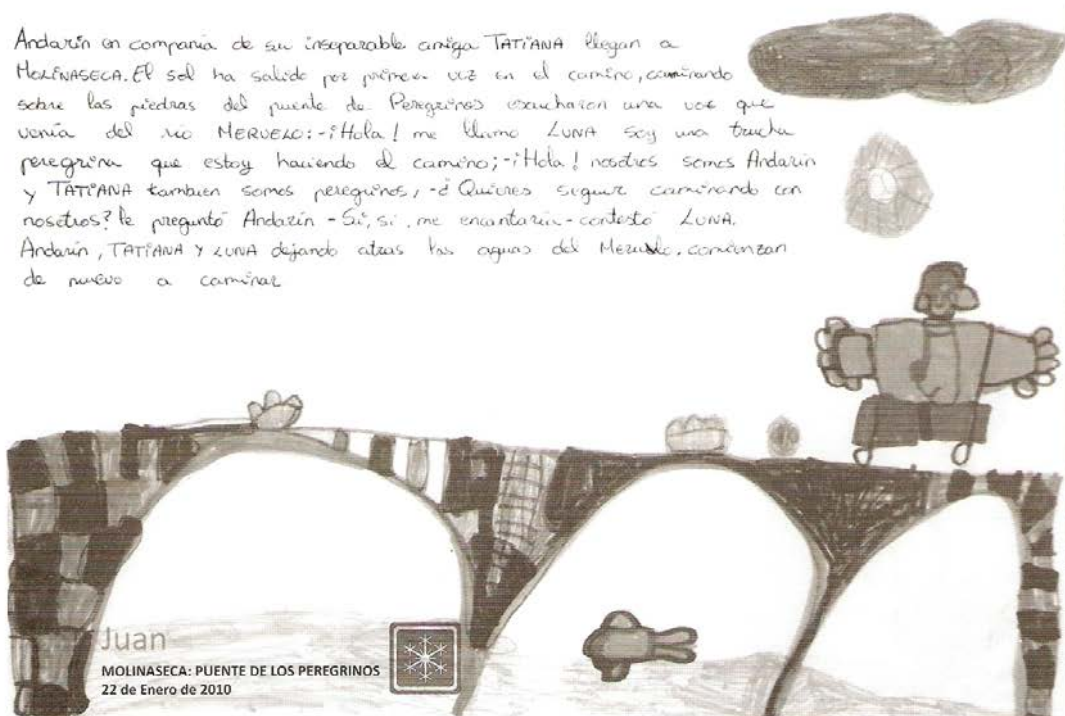 Andarín en compania de su inseparable amiga TATIANA llegan a
MOLINASECA. El sol ha salido por primera vez en el camino, caminando
sobre las piedras del puente de Peregrinos escucharon una voz que
venía del rio MERUELO: -¡Hola! me llamo LUNA soy una trucha
peregrina que estoy haciendo el camino; -¡Hola! nosotros somos Andarin
y TATIANA tambien somos peregrinos, -¿Quieres seguir caminando con
nosotros? le preguntó Andarín - Si, si, me encantaría - contestó LUNA.
Andarín, TATIANA Y LUNA dejando atras las aguas del Meruelo, comienzan
de nuevo a caminar
Juan
MOLINASECA: PUENTE DE LOS PEREGRINOS
22 de Enero de 2010